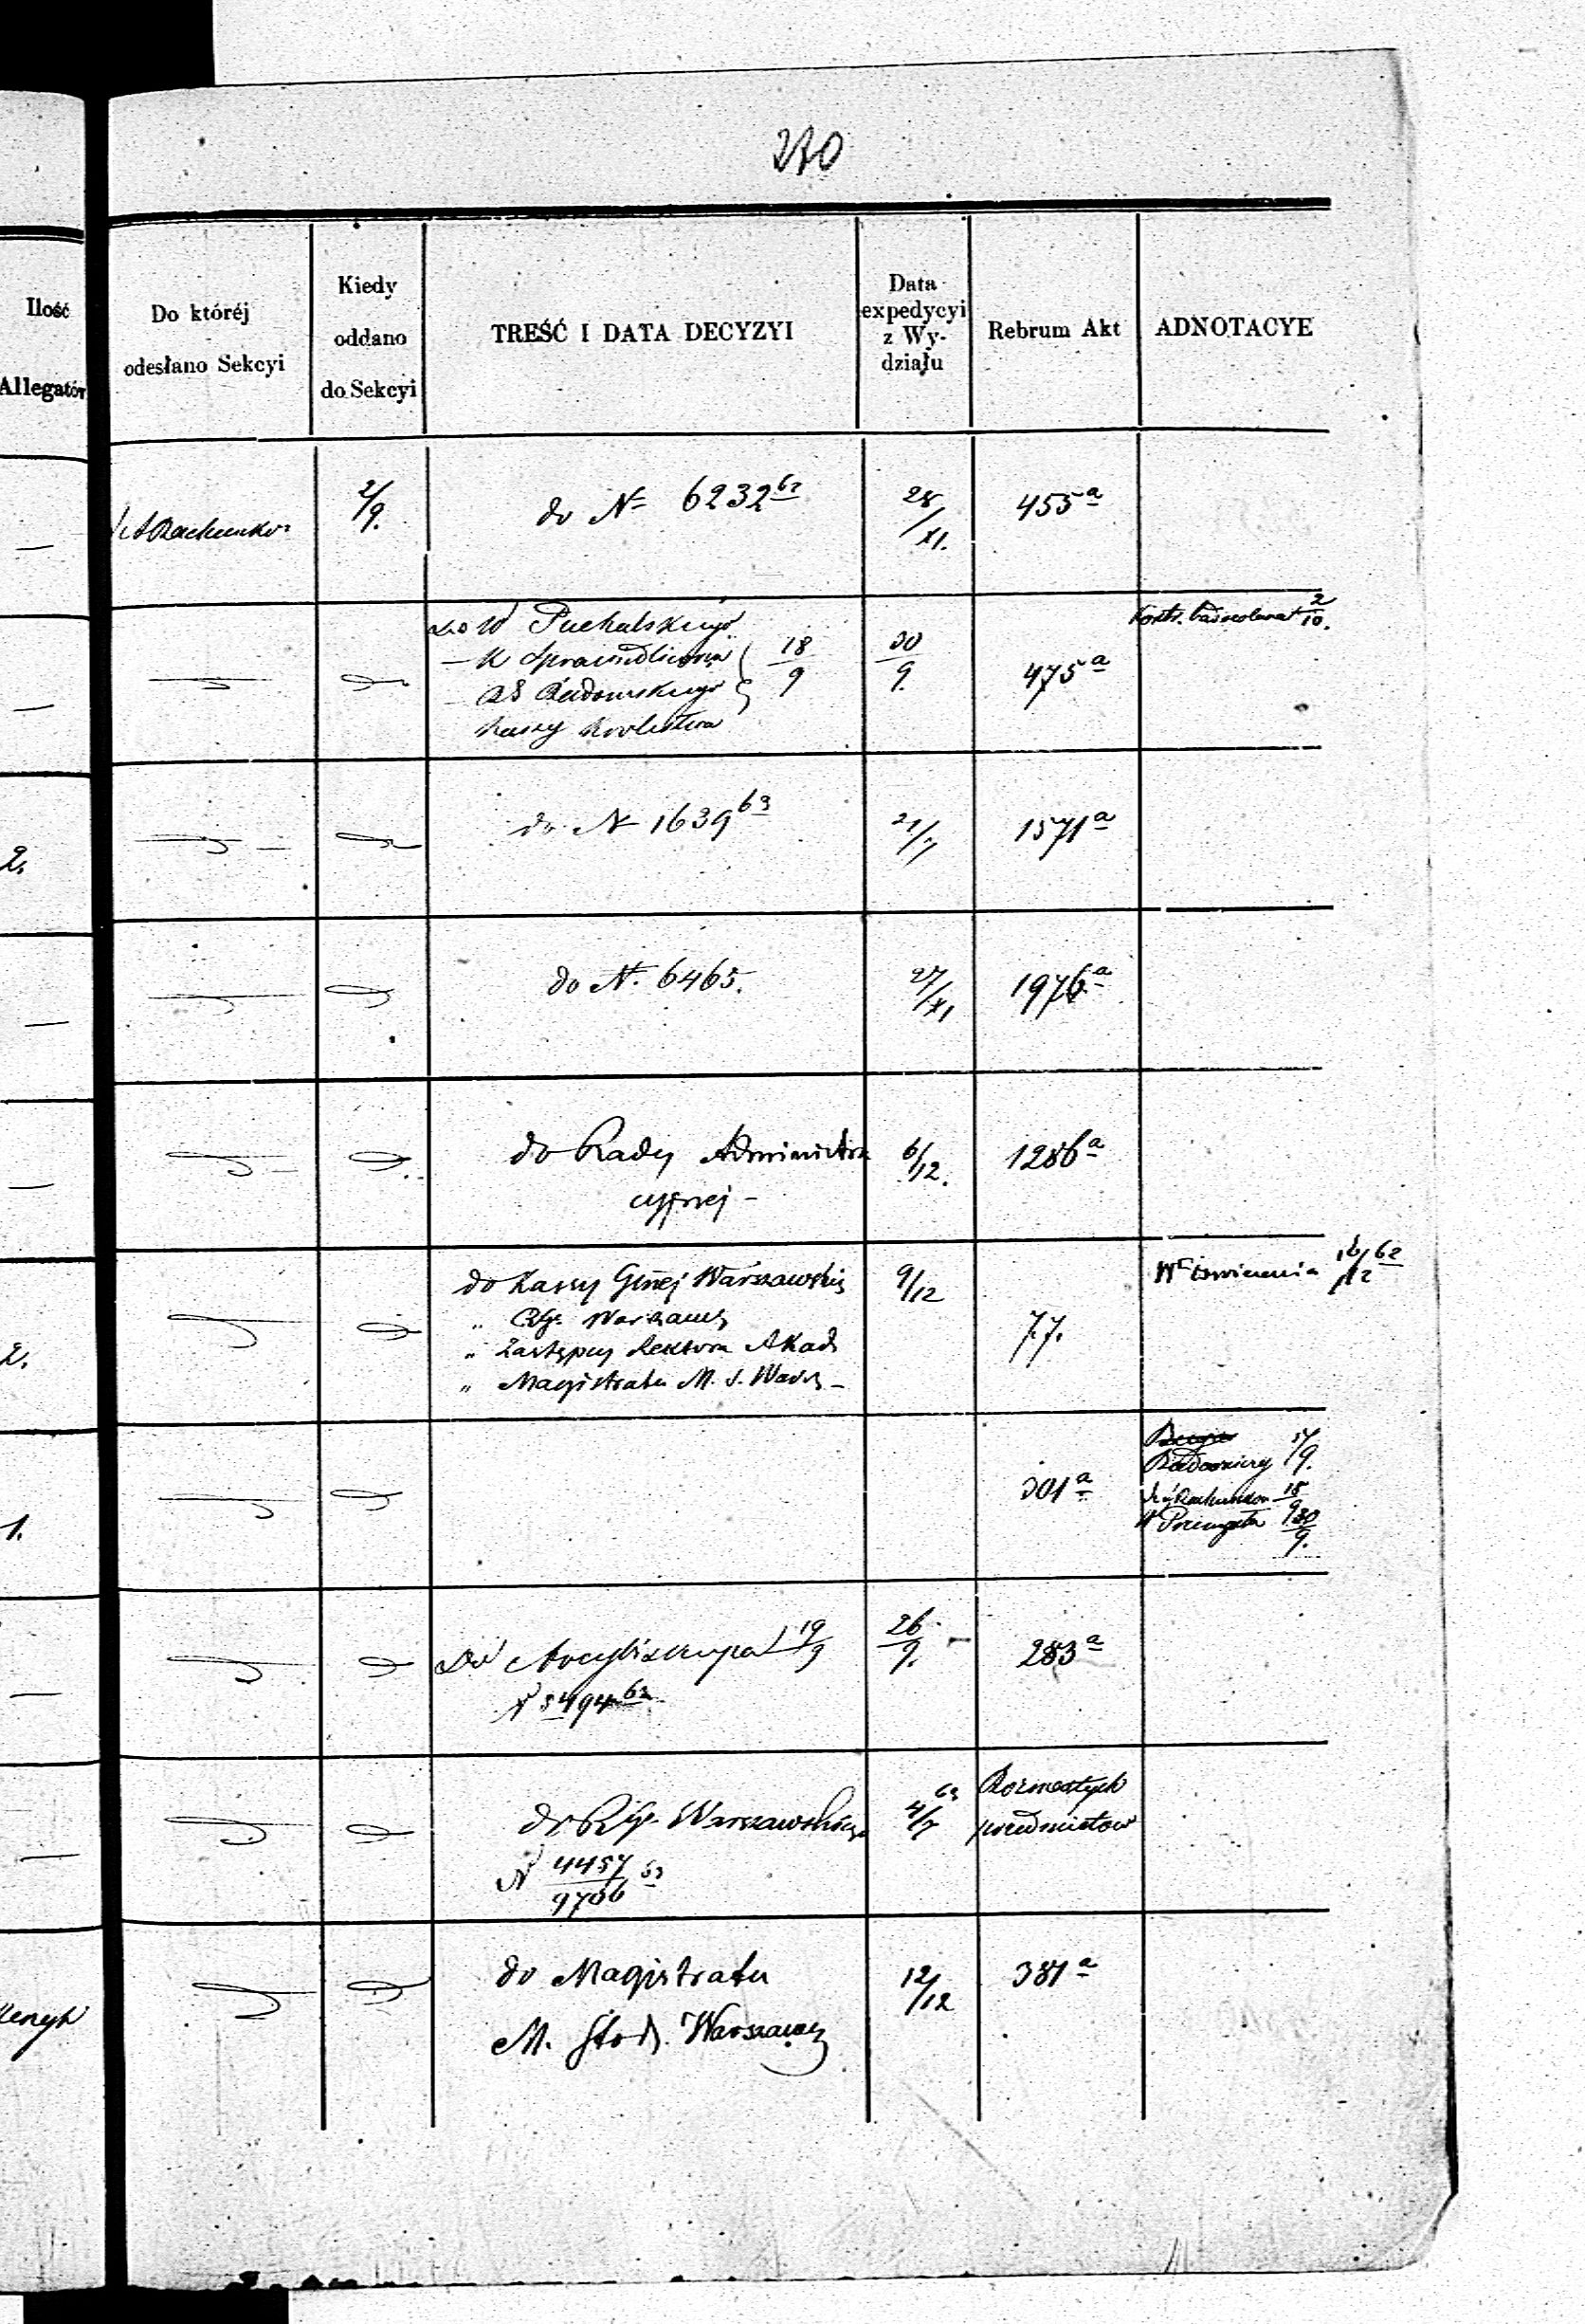 270
Ilość
Allegatów
Do któréj
odesłano Sekcyi
Kiedy
oddano
do Sekcyi
TREŚĆ I DATA DECYZYI
Data
expedycyi
z Wy-
działu
Rebrum Akt
ADNOTACYE
Rachunko
2/9.
do N 6232 62
28/XI.
455 a
do W Puchalskiego
— K Sprawiedliwości 18/9
Radomskiego
Kassy Królestwa
30/9.
475 a
2/10.
2.
do N 1639 63
21/
1571 a
do N. 6465.
27/XI
1976 a
do Rady Administra
cyjnej –
6/12.
1286 a
2.
do Kassy Głnej Warszawskiej
„ Warszaws
„ Zastępcy Rektora Akad
„ Magistratu M. S. Warsz –
9/12
7.7.
Oświecenia 16/12 62
1.
301 a
17/9.
Rachunkow 18/9
Przemysłu 30/9.
Do Arcybiskupa 19/9
N 5494 62
26/9. –
283 a
do RGo Warszawskiego
N 4457/9706 63
4/7 63
Rozmaitych
przedmiotów
do Magistratu
M. Stoł. Warszawy
12/12
381 a